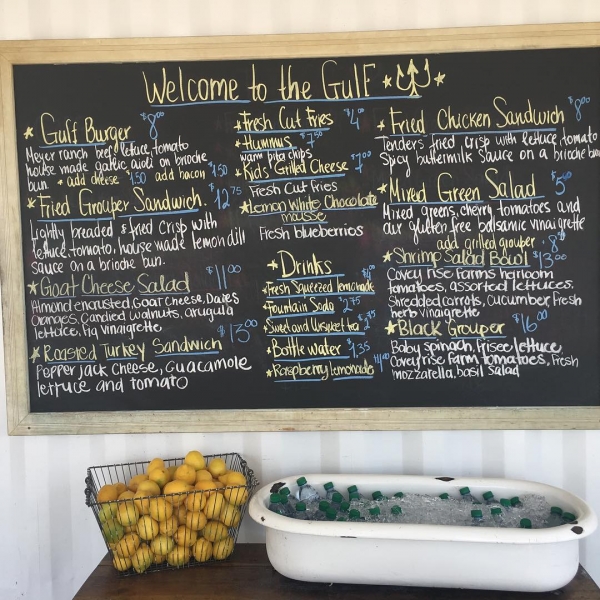 Welcome to the Gulf
Gulf Burger $8.00
Meyer ranch beef, lettuce, tomato
house made garlic aioli on brioche
bun * add cheese 1.50 add bacon 1.50
Fried Grouper Sandwich. $12.75
Lightly breaded & fried crisp with
lettuce, tomato, house made lemon dill
sauce on a brioche bun.
Goat Cheese Salad $11.00
Almond encrusted, Goat Cheese, Dates
Oranges, Candied walnuts, arugula
lettuce, fig vinaigrette.
Roasted Turkey Sandwich $13.00
Pepper jack cheese, Guacamole
lettuce and tomato
Fresh Cut Fries $4.00
Hummus $7.50
warm pita chips
Kids Grilled Cheese $7.00
Fresh Cut Fries
Lemon White Chocolate
mousse
Fresh blueberrios
Drinks
Fresh Squeezed lemonade
Fountain Soda $2.75
Sweet and Unsweet tea
Bottle water $1.35
Raspberry lemonade
Fried Chicken Sandwich $8.00
Tenders fried crisp with lettuce, tomato
Spicy buttermilk sauce on a brioche bun
Mixed Green Salad
Mixed greens, cherry tomatoes and
our gluten free balsamic vinaigrette
add grilled grouper
Shrimp Salad Bowl $13.00
Covey rise Farms heirloom
tomatoes, assorted lettuces.
Shredded carrots, cucumber fresh
herb vinaigrette
Black Grouper $16.00
Baby spinach, frisee lettuce
Covey rise Farm tomatoes, fresh
mozzarella, basil salad